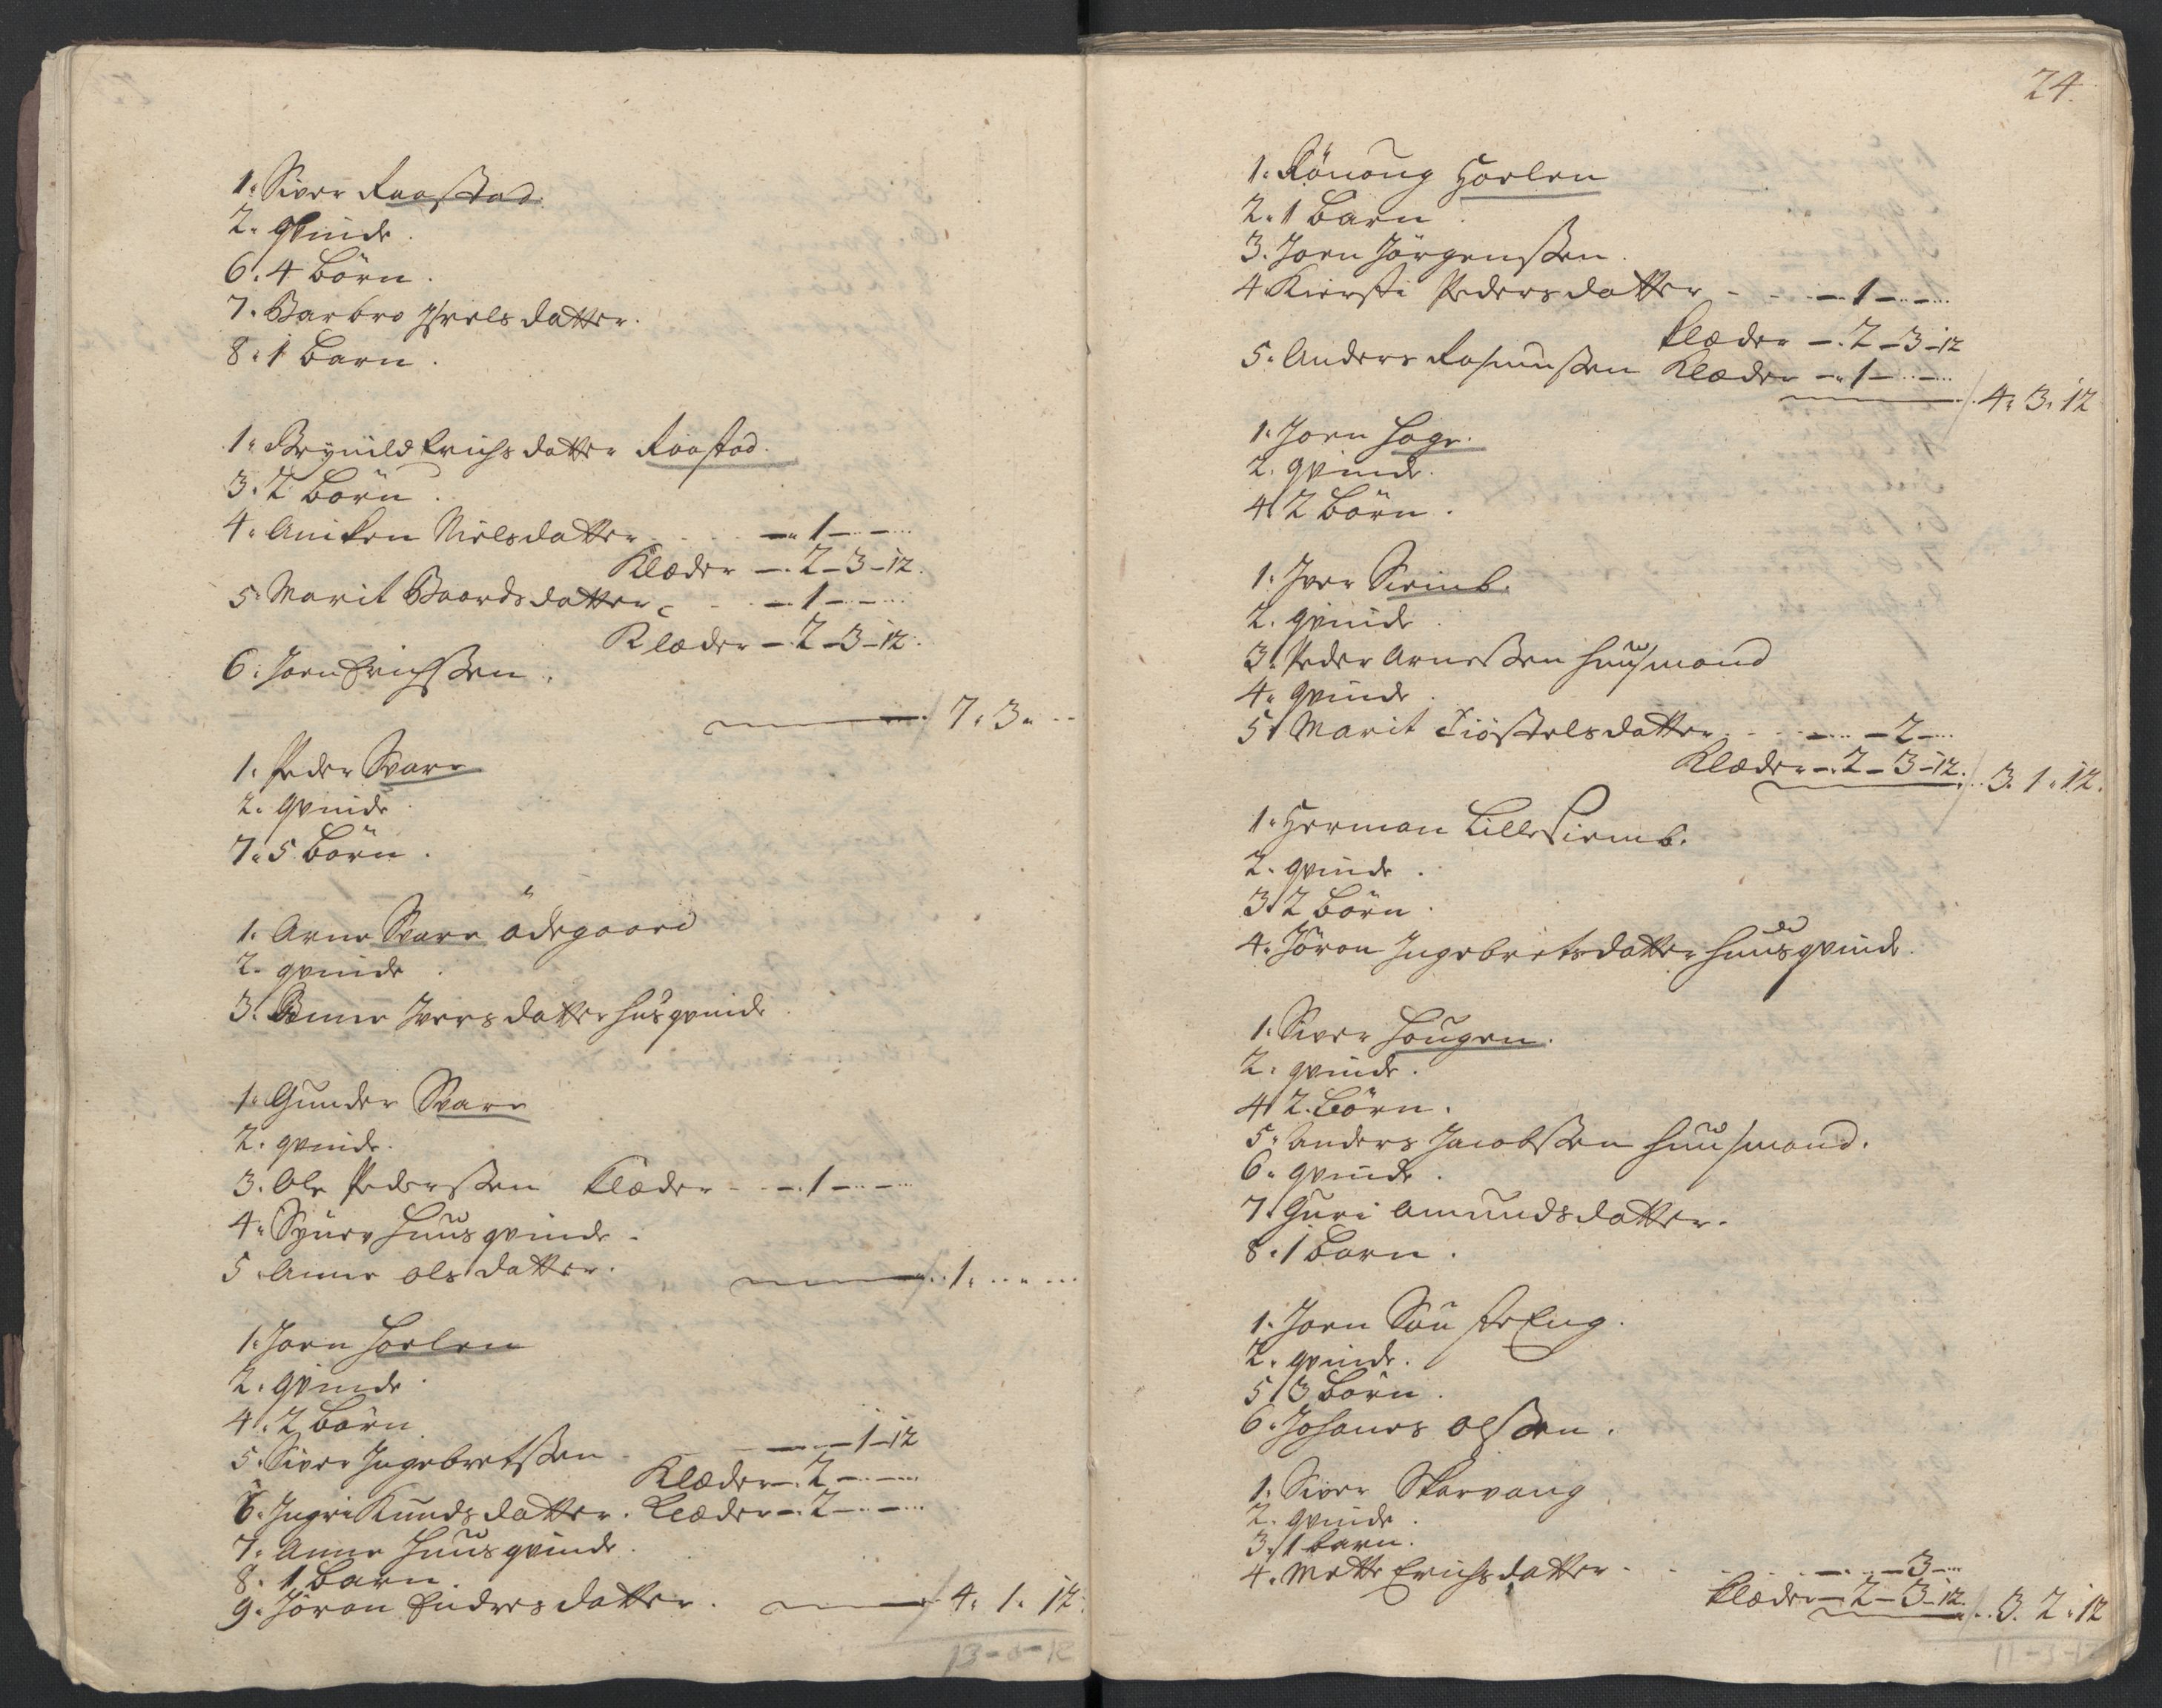 1. Siver Raastad.
2. qvinde.
6. 4 Börn.
7. Barbro Jversdatter.
8. 1 Barn.
1. Brynild Erichsdatter Raastad.
3. 2 Börn.
4. Aniken Nielsdatter - - - 1 - -
Klæder - 2 - 3 - 12.
5. Marit Baardsdatter - - - 1 - -
Klæder - 2 - 3 - 12.
6. Joen Erichssen.
7. 3. -
1. Peder Svare
2. qvinde.
7. 5 Börn.
1. Arne Svare ödegaard
2. qvinde.
3. Anne Jversdatter husqvinde.
1. Gunder Svare
2. qvinde.
3. Ole Pederssen Klæder - - 1 - -
4. Synev huusqvinde.
5. Anne Olsdatter.
1. - -
1. Joen Hoelen
2. qvinde.
4. 2 Börn.
5. Siver Jngebretssen - - - 1 - 12
Klæder - 2 - -
6. Jngri Knudsdatter. Klæder - 2 - -
7. Anne huusqvinde.
8. 1 Barn.
9. Jöran Endresdatter.
4. 1. 12.
13-0-12
24.
1. Rönnoug Hoelen
2. 1 Barn.
3. Joen Jörgenssen.
4. Kiersti Pedersdatter - - - 1 - -
Klæder - 2 - 3 - 12
5. Anders Rasmussen Klæder - 1 - -
4. 3. 12
1. Joen Hage.
2. qvinde.
4. 2 Börn.
1. Jver Siemb.
2. qvinde.
3. Peder Arnessen huusmand
4. qvinde.
5. Marit Tiöstelsdatter - - - 2 -
Klæder - 2 - 3 - 12. 3. 1. 12.
1. Herman Lille Siemb.
2. qvinde.
3. 2 Börn.
4. Jöran Jngebretsdatter huusqvinde.
1. Siver Hougen.
2. qvinde.
4. 2 Börn.
5. Anders Jacobssen huusmand.
6. qvinde.
7. Guri Amundsdatter.
8. 1 Barn.
1. Joen Söndre Eng.
2. qvinde.
5. 3 Börn.
6. Johanes Olssen.
1. Siver Skarvang
2. qvinde.
3. 1 barn.
4. Mette Erichsdatter - - - 3 -
Klæder - 2 - 3 - 12. 3. 2. 12